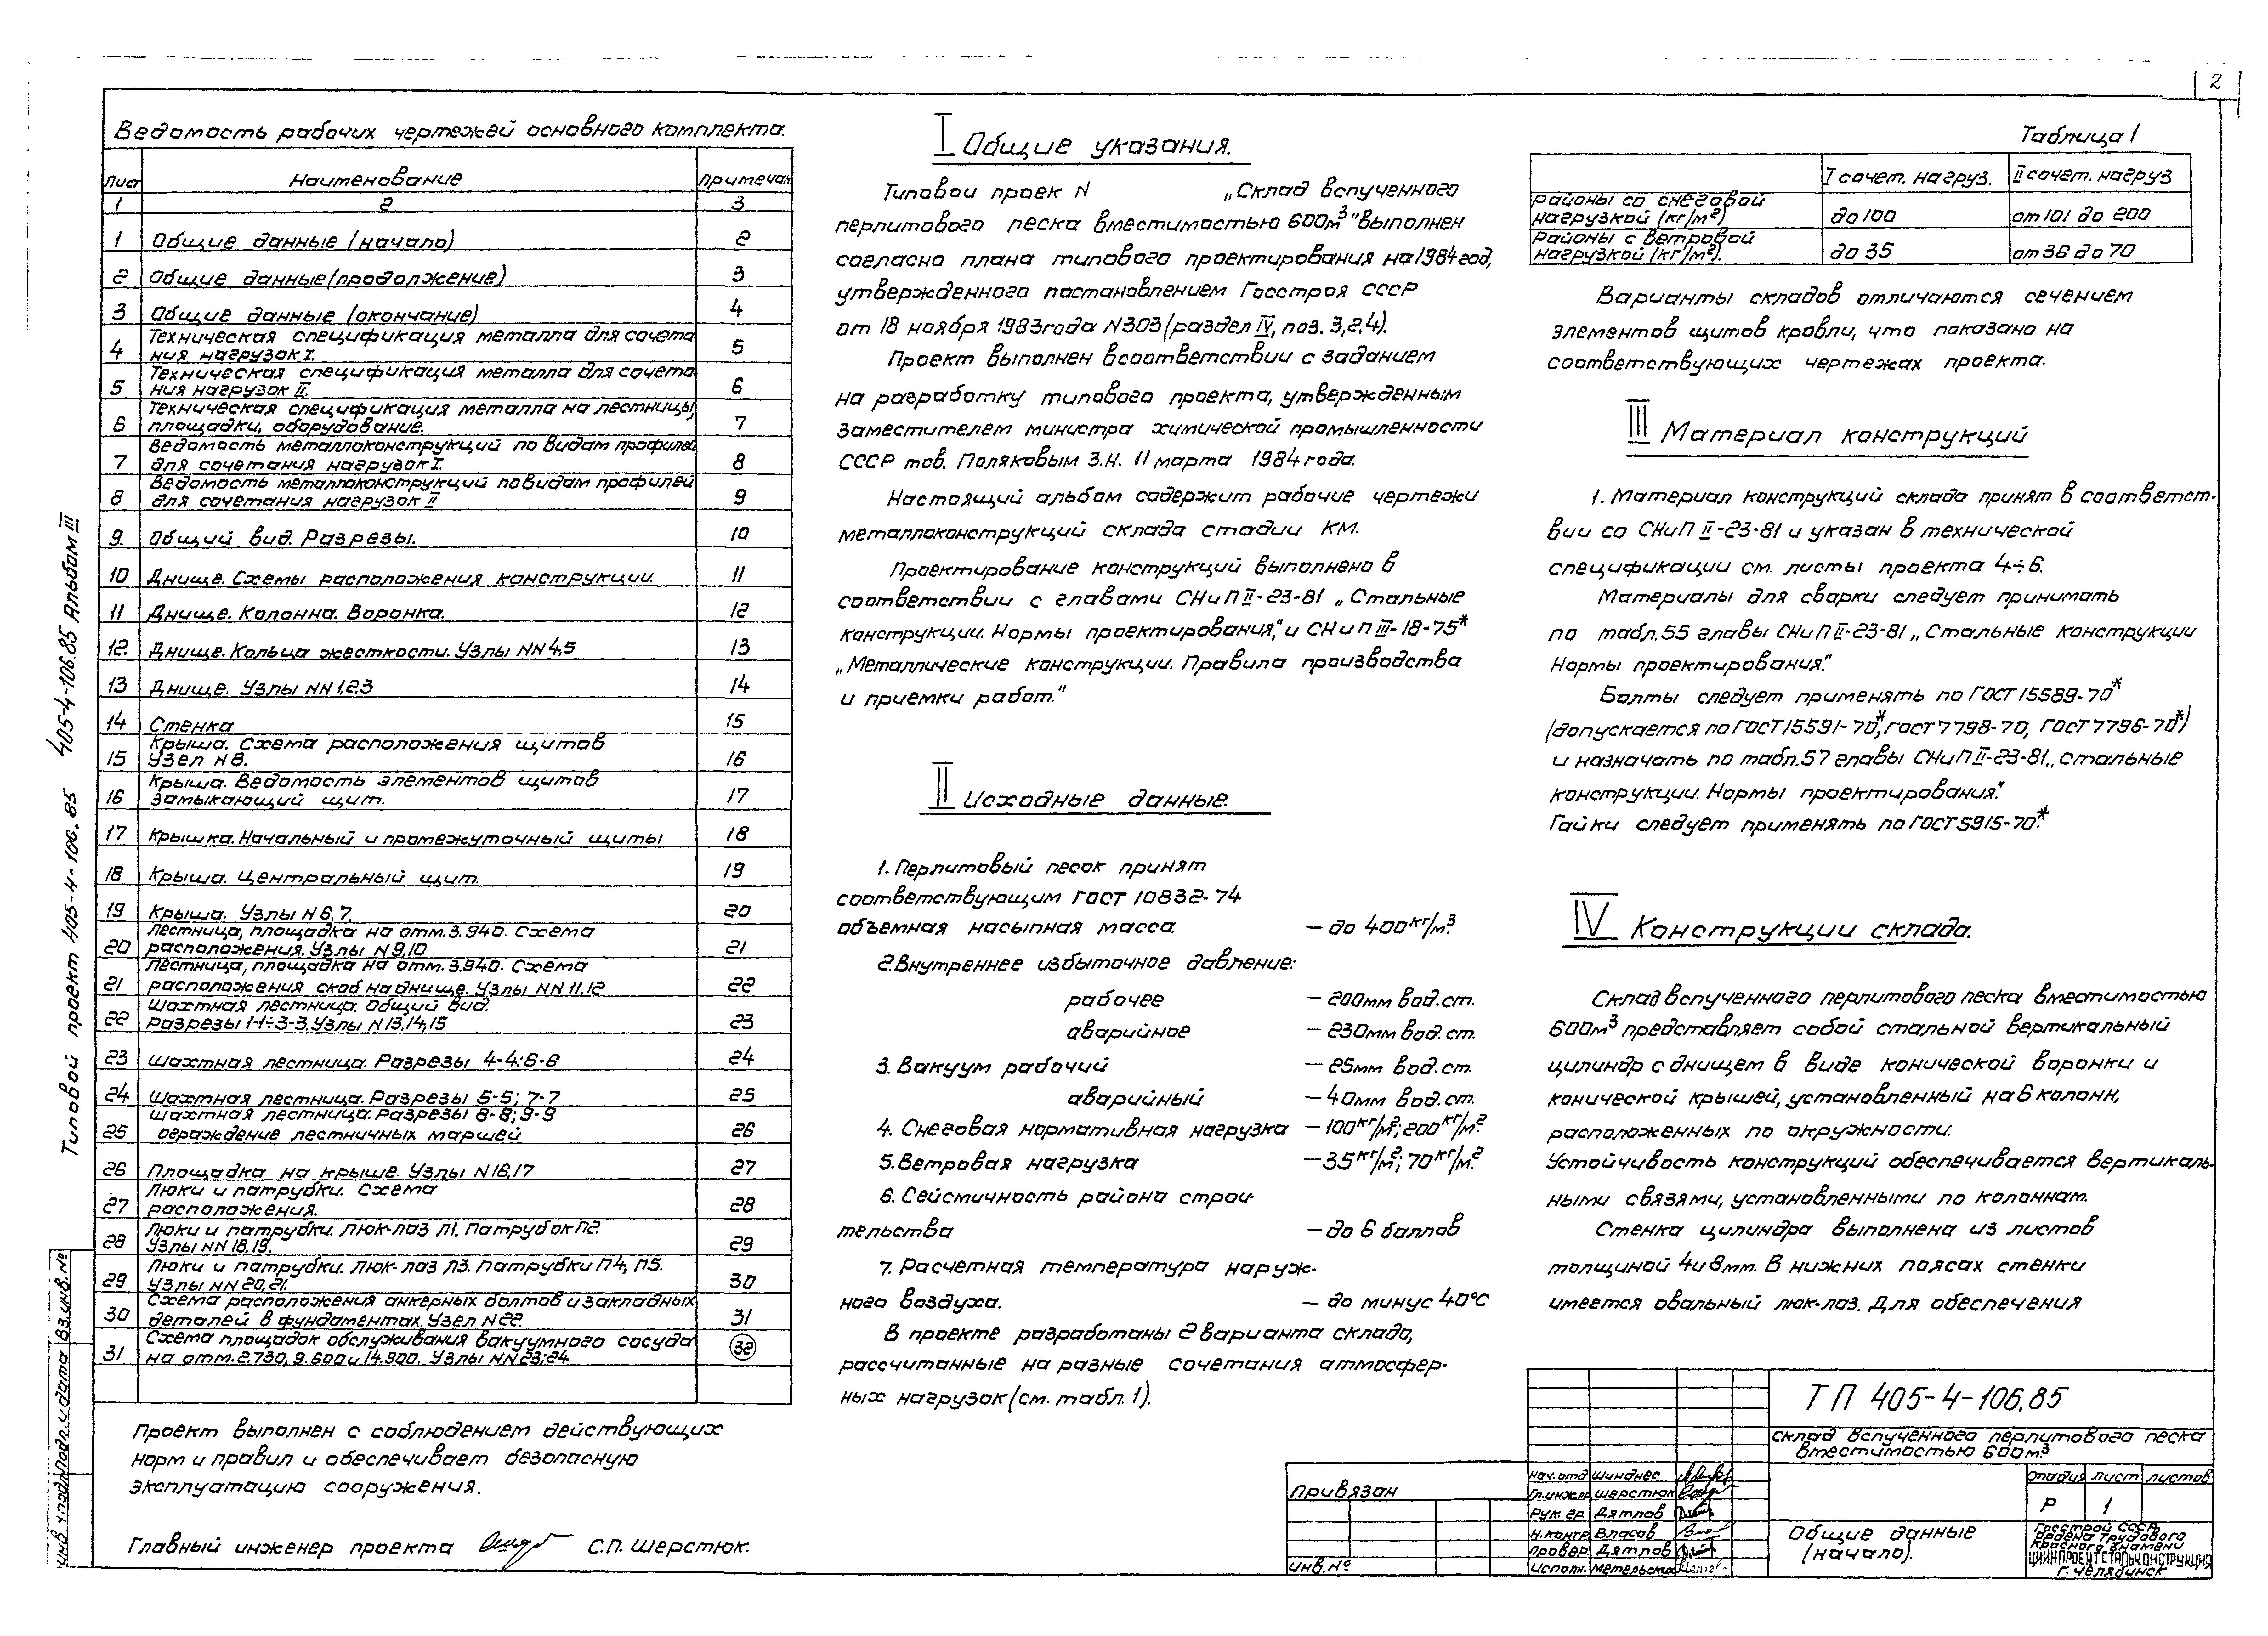 2
Ведомость рабочих чертежей основного комплекта.
Лист Наименование Примечан.
1 2 3
1 Общие данные (начало) 2
2 Общие данные (продолжение) 3
3 Общие данные (окончание) 4
4 Техническая спецификация металла для сочета
ния нагрузок I. 5
5 Техническая спецификация металла для сочета
ния нагрузок II. 6
6 Техническая спецификация металла на лестницы,
площадки, оборудование. 7
7 Ведомость металлоконструкций по видам профилей
для сочетания нагрузок I. 8
8 Ведомость металлоконструкций по видам профилей
для сочетания нагрузок II 9
9. Общий вид. Разрезы. 10
10 Днище. Схемы расположения конструкции. 11
11 Днище. Колонна. Воронка. 12
12. Днище. Кольца жесткости. Узлы NN 4,5 13
13 Днище. Узлы NN 1,2,3 14
14 Стенка 15
15 Крыша. Схема расположения щитов
Узел N 8. 16
16 Крыша. Ведомость элементов щитов
Замыкающий щит. 17
17 Крышка. Начальный и промежуточный щиты 18
18 Крыша. Центральный щит. 19
19 Крыша. Узлы N 6,7. 20
20 Лестница, площадка на отм. 3.940. Схема
расположения. Узлы N 9,10 21
21 Лестница, площадка на отм. 3.940. Схема
расположения скоб на днище. Узлы NN 11,12 22
22 Шахтная лестница. Общий вид.
Разрезы 1-1÷3-3. Узлы N 13,14,15 23
23 Шахтная лестница. Разрезы 4-4; 6-6 24
24 Шахтная лестница. Разрезы 5-5; 7-7 25
25 Шахтная лестница. Разрезы 8-8; 9-9
ограждение лестничных маршей 26
26 Площадка на крыше. Узлы N 16,17 27
27 Люки и патрубки. Схема
расположения. 28
28 Люки и патрубки. Люк-лаз Л1. Патрубок П2.
Узлы NN 18,19. 29
29 Люки и патрубки. Люк-лаз Л3. Патрубки П4, П5.
Узлы NN 20,21. 30
30 Схема расположения анкерных болтов и закладных
деталей в фундаментах. Узел N 22. 31
31 Схема площадок обслуживания вакуумного сосуда
на отм. 2.730, 9.600 и 14.900. Узлы NN 23; 24 32
Проект выполнен с соблюдением действующих
норм и правил и обеспечивает безопасную
эксплуатацию сооружения.
Главный инженер проекта С.П. Шерстюк.
I Общие указания.
Типовой проек N „Склад вспученного
перлитового песка вместимостью 600м³" выполнен
согласно плана типового проектирования на 1984 год,
утвержденного постановлением Госстроя СССР
от 18 ноября 1983года N303 (раздел IV, поз. 3,2,4).
Проект выполнен в соответствии с заданием
на разработку типового проекта, утвержденным
заместителем министра химической промышленности
СССР тов. Поляковым З.Н. 11 марта 1984 года.
Настоящий альбом содержит рабочие чертежи
металлоконструкций склада стадии КМ.
Проектирование конструкций выполнено в
соответствии с главами СНиП II-23-81 „Стальные
конструкции. Нормы проектирования", и СНиП III-18-75*
„Металлические конструкции. Правила производства
и приемки работ."
II Исходные данные.
1. Перлитовый песок принят
соответствующим ГОСТ 10832-74
объемная насыпная масса — до 400 кг/м³.
2. Внутреннее избыточное давление:
рабочее — 200мм вод. ст.
аварийное — 230мм вод. ст.
3. Вакуум рабочий — 25мм вод. ст.
аварийный — 40мм вод. ст.
4. Снеговая нормативная нагрузка — 100 кг/м²; 200 кг/м².
5. Ветровая нагрузка — 35 кг/м²; 70 кг/м².
6. Сейсмичность района строи-
тельства — до 6 баллов
7. Расчетная температура наруж-
ного воздуха. — до минус 40°С
В проекте разработаны 2 варианта склада,
рассчитанные на разные сочетания атмосфер-
ных нагрузок (см. табл. 1).
Таблица 1
I сочет. нагруз. II сочет. нагруз
Районы со снеговой
нагрузкой (кг/м²) до 100 от 101 до 200
Районы с ветровой
нагрузкой (кг/м²). до 35 от 36 до 70
Варианты складов отличаются сечением
элементов щитов кровли, что показано на
соответствующих чертежах проекта.
III Материал конструкций
1. Материал конструкций склада принят в соответст-
вии со СНиП II-23-81 и указан в технической
спецификации см. листы проекта 4÷6.
Материалы для сварки следует принимать
по табл. 55 главы СНиП II-23-81 „Стальные конструкции
Нормы проектирования."
Болты следует применять по ГОСТ 15589-70*
(допускается по ГОСТ 15591-70*, ГОСТ 7798-70, ГОСТ 7796-70*)
и назначать по табл. 57 главы СНиП II-23-81 „Стальные
конструкции. Нормы проектирования."
Гайки следует применять по ГОСТ 5915-70*.
IV Конструкции склада.
Склад вспученного перлитового песка вместимостью
600м³ представляет собой стальной вертикальный
цилиндр с днищем в виде конической воронки и
конической крышей, установленный на 6 колонн,
расположенных по окружности.
Устойчивость конструкций обеспечивается вертикаль-
ными связями, установленными по колоннам.
Стенка цилиндра выполнена из листов
толщиной 4 и 8 мм. В нижних поясах стенки
имеется овальный люк-лаз. Для обеспечения
Привязан
Инв. №
Нач. отд Шинднес
Гл. инж. пр. Шерстюк
Рук. гр. Дятлов
Н. контр Власов
Провер. Дятлов
Исполн. Метельских
ТП 405-4-106.85
Склад вспученного перлитового песка
вместимостью 600м³
Стадия Лист Листов
Р 1
Общие данные
(начало).
Госстрой СССР
Ордена Трудового
Красного Знамени
ЦНИИПРОЕКТСТАЛЬКОНСТРУКЦИЯ
г. Челябинск
Типовой проект 405-4-106.85 405-4-106.85 Альбом III
Инв. № подл. Подп. и дата Вз. инв. №